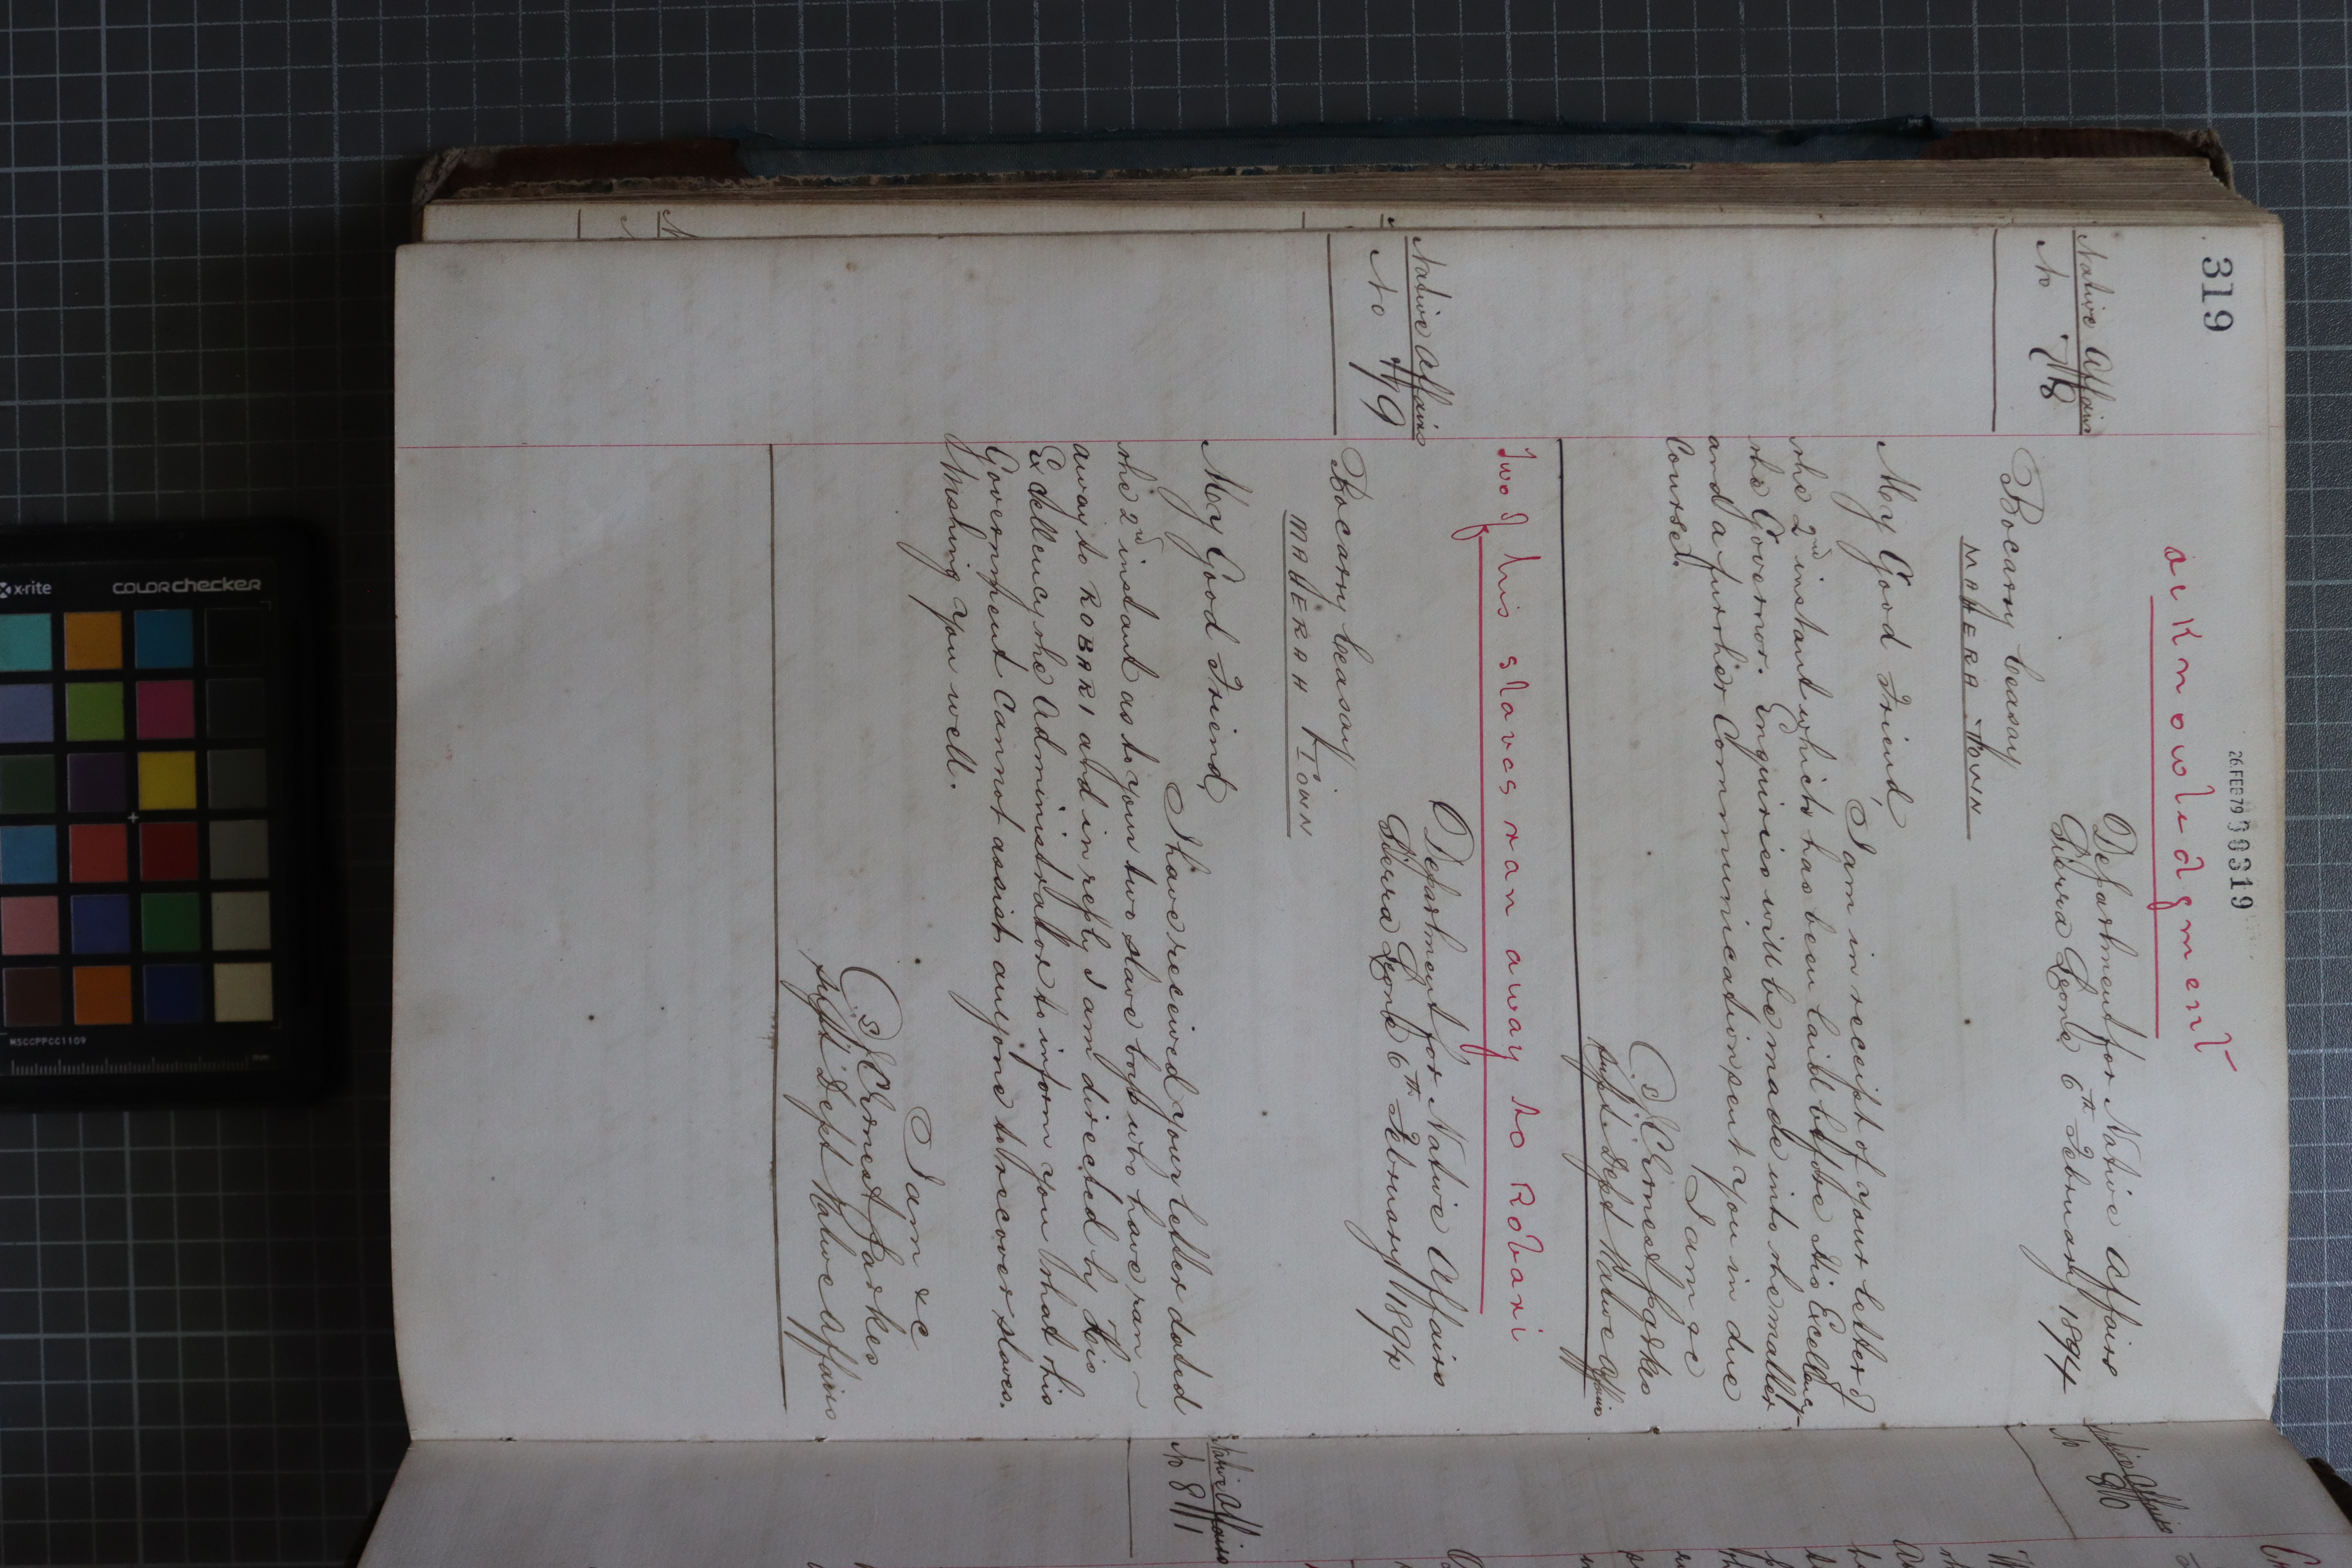 319
26 FEB 79 000319
acknowledgment
Native Affairs
No 78
Department for Native Affairs
Sierra Leone 6th February 1894
Bocary Ceasay
MAHERA TOWN
My Good Friend,
I am in receipt of your letter of
the 2nd instant which has been laid before His Excellency
the Governor. Enquiries will be made into the matter
and a further Communication sent you in due
Course.
I am &c
J C Ernest Parkes
Supt: Dept Native Affairs
Two of his slaves ran away to Robari
Native Affairs
No 79
Department for Native Affairs
Sierra Leone 6th February 1894
Bocary Ceasay
MAHERAH TOWN
My Good Friend,
I have received your letter dated
the 2nd instant as to your two slave boys who have ran
away to ROBARI and in reply I am directed by His
Excellency the Administrator to inform you that this
Government Cannot assist anyone to recover slaves.
Wishing you well.
I am &c
J C Ernest Parkes
Supt Dept Native Affairs
Native Affairs
No 80
Native Affairs
No 81
x-rite
COLORchecker
MSCCPPCC1109